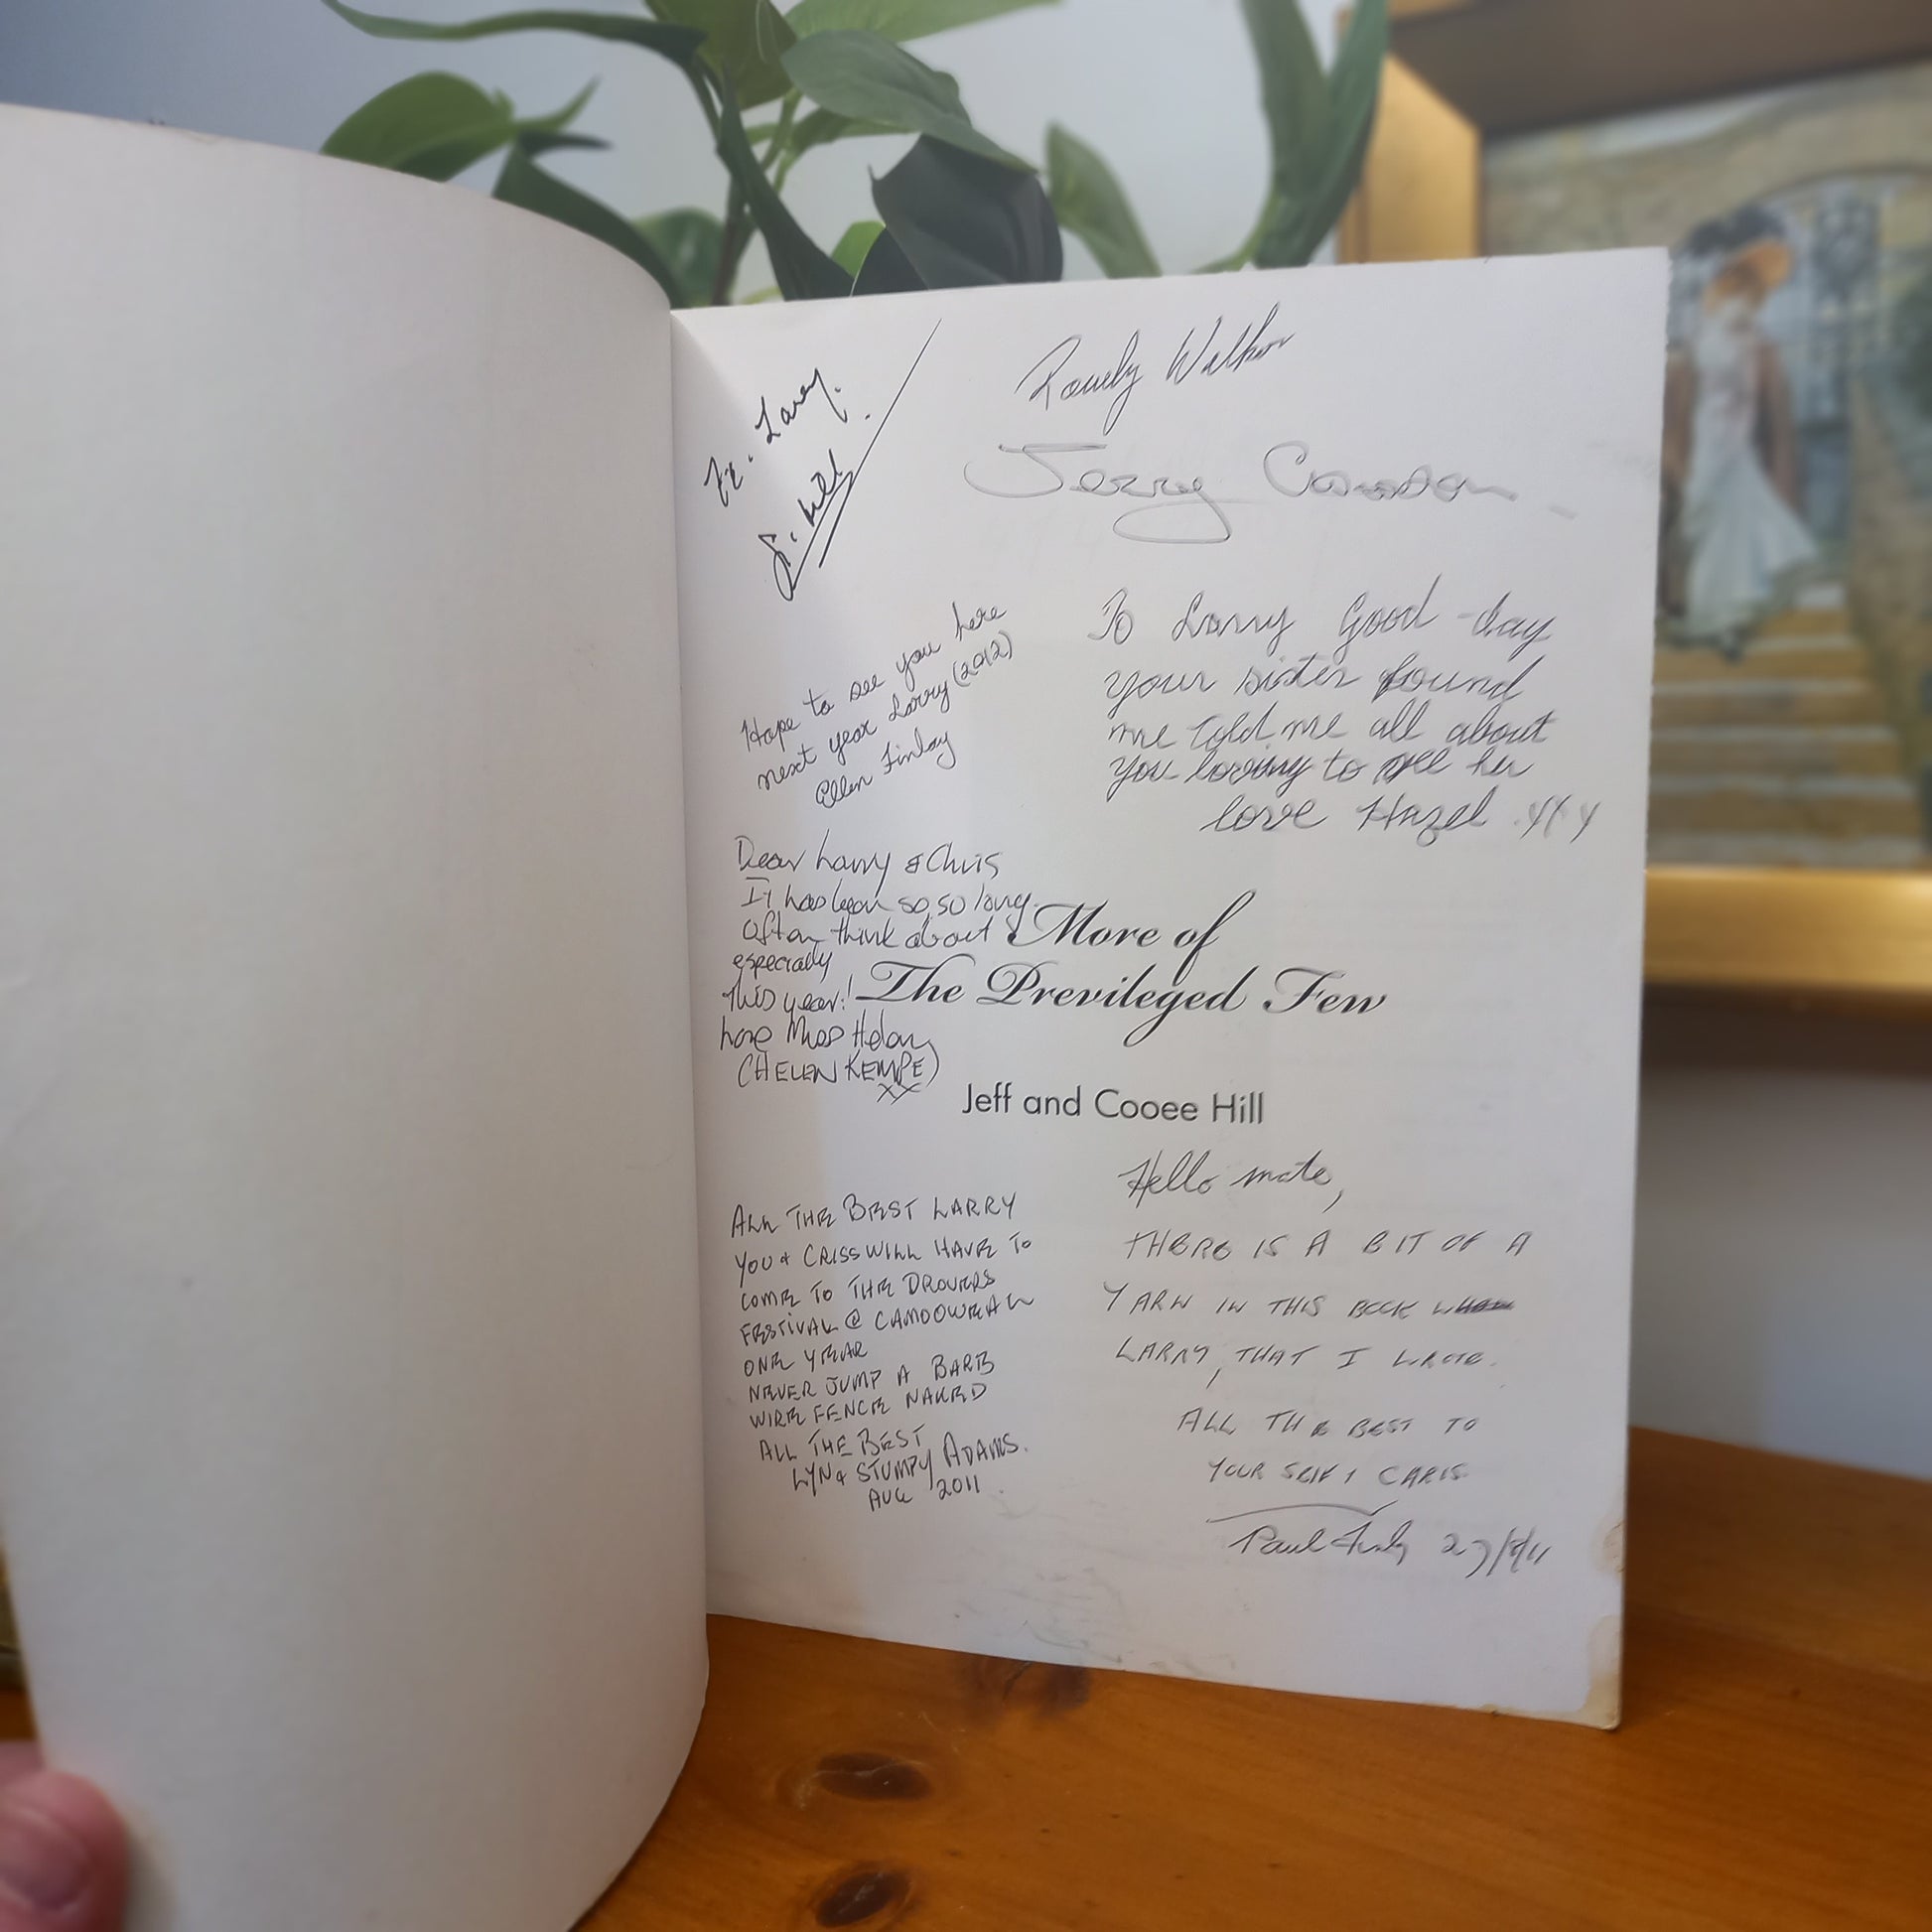 To. Larry.
J. Hill
Jerry
Hope to see you here
next year Larry (2012)
Ellen Finlay
To Larry Good-day
your sister found
me told me all about
you to see her
love Hazel
Dear Larry & Chris
It has been so, so long.
Often think about
especially
this year!
Love Miss Helen
(HELEN KEMPE)
XX
More of
The Previleged Few
Jeff and Cooee Hill
ALL THE BEST LARRY
YOU & CRISS WILL HAVE TO
COME TO THE DROVERS
FESTIVAL @ CAMOOWEAL
ONE YEAR
NEVER JUMP A BARB
WIRE FENCE NAKED
ALL THE BEST
LYN & STUMPY ADAMS.
AUG 2011
Hello mate,
THERE IS A BIT OF A
YARN IN THIS BOOK
LARRY, THAT I WROTE.
ALL THE BEST TO
YOUR SELF & CHRIS
Paul 27/8/11